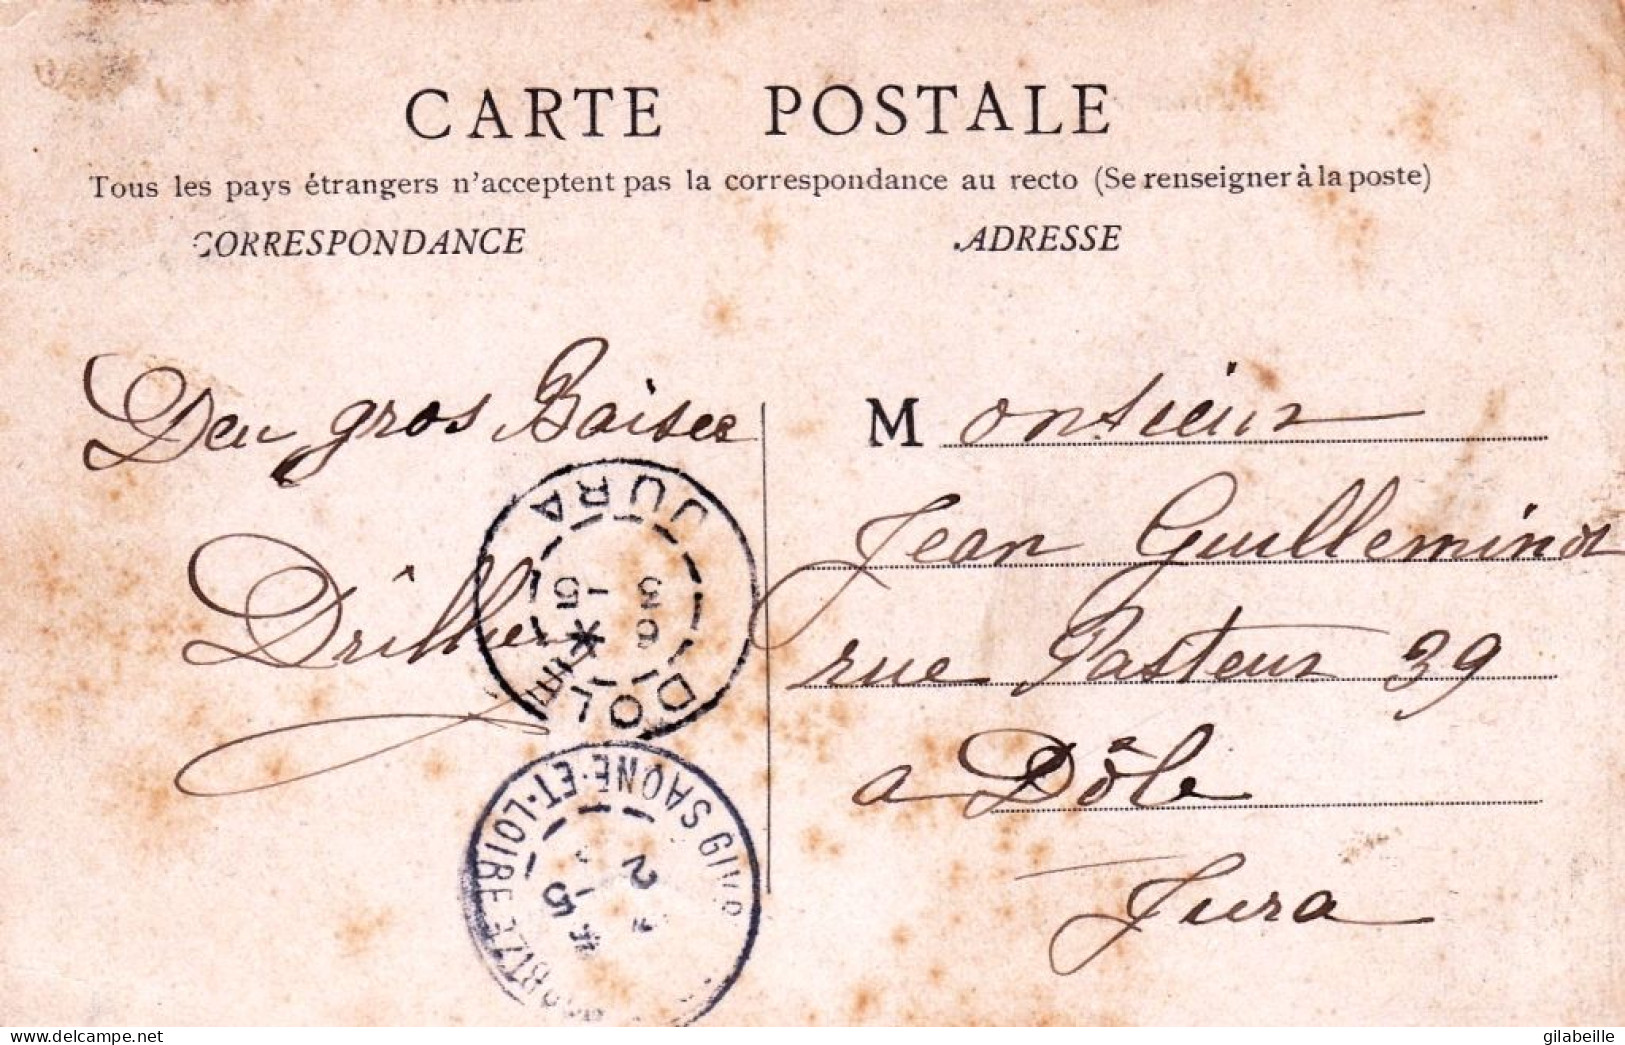 CARTE POSTALE
Tous les pays étrangers n'acceptent pas la correspondance au recto (Se renseigner à la poste)
CORRESPONDANCE
ADRESSE
Deu gros Baisee
M onsieur
Jean Guilleminot
rue Pasteur 39
a Dôle
Jura
JURA
DOLE
SAONE-ET-LOIRE
delcampe.net
gilabeille